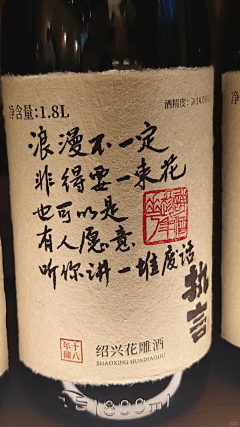 净含量:1.8L
酒精度:≥14.0%
浪漫不一定
非得要一束花
也可以是
有人愿意
听你讲一堆废话
执言
十八年陳
绍兴花雕酒
SHAOXING HUADIAOJIU
1800ml